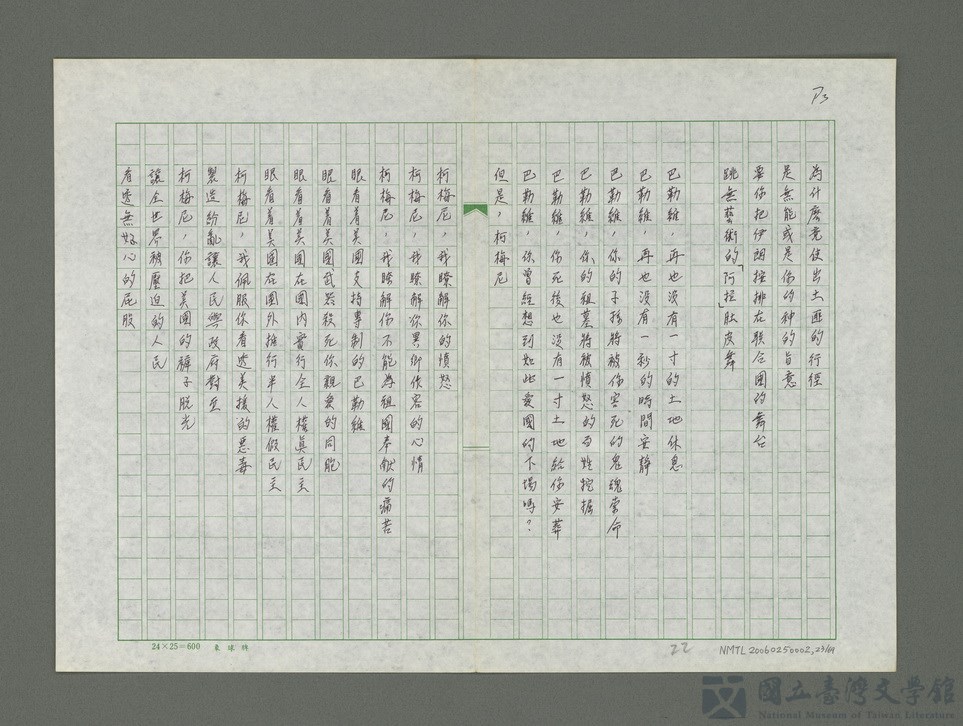 P3
為什麼竟使出土匪的行徑
是無能或是你的神的旨意
要你把伊朗按排在联合国的舞台
跳無藝術的「阿拉」肚皮舞
巴勒維，再也没有一寸的土地休息
巴勒維，再也沒有一秒的時間安靜
巴勒維，你的子孫將被你害死的鬼魂索命
巴勒維，你的祖墓將被憤怒的百姓挖掘
巴勒維，你死後也沒有一寸土地給你安葬
巴勒維，你曾經想到如此愛國的下場嗎？
但是，柯梅尼
柯梅尼，我瞭解你的憤怒
柯梅尼，我瞭解你異鄉作客的心情
柯梅尼，我瞭解你不能為祖國奉献的痛苦
眼看着美國支持專制的巴勒維
眼看着美國武器殺死你親愛的同胞
眼看着美國在國內實行全人權真民主
眼看着美國在國外推行半人權假民主
柯梅尼，我佩服你看透美援的惡毒
製造紛亂讓人民與政府對立
柯梅尼，你把美國的褲子脫光
讓全世界被壓迫的人民
看透無好心的屁股
24×25=600
22
NMTL20060250002,23/64
國立臺灣文學館
National Museum of Taiwan Literature